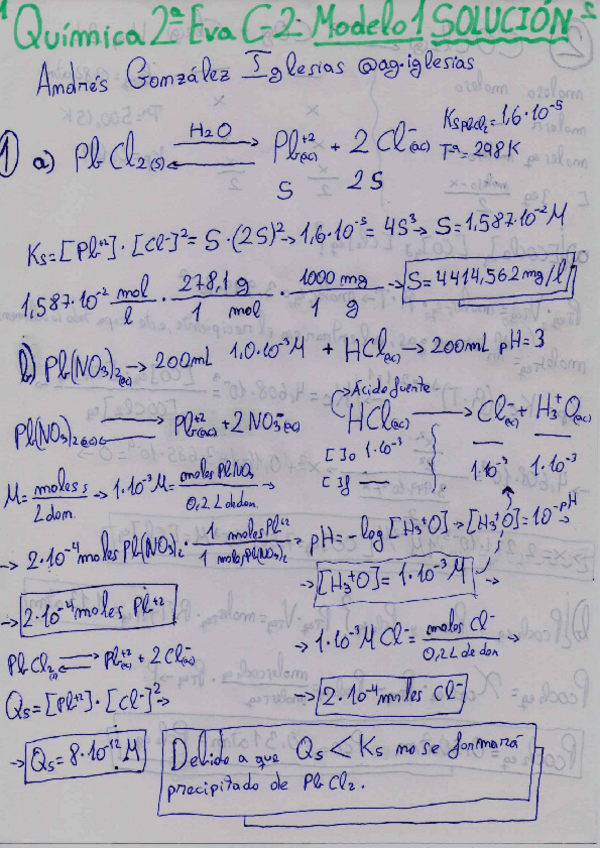 Química 2ª Eva C-2 Modelo 1 SOLUCIÓN
Andrés González Iglesias @ag.iglesias
1 a) PbCl2(s) H2O ⇌ Pb+2(ac) + 2Cl-(ac) KsPbCl2 = 1,6·10-5
Tª = 298K
S 2S
Ks = [Pb+2]·[Cl-]2 = S·(2S)2 → 1,6·10-5 = 4S3 → S = 1,587·10-2 M
1,587·10-2 mol/l · 278,1 g/1 mol · 1000 mg/1 g → S = 4414,562 mg/l
b) Pb(NO3)2(ac) → 200mL 1,0·10-3M + HCl(ac) → 200mL pH=3
→ Ácido fuerte
Pb(NO3)2(ac) ⇌ Pb+2(ac) + 2NO3-(ac) HCl(ac) → Cl-(ac) + H3+O(ac)
[ ]o 1·10-3 — —
[ ]f — 1·10-3 1·10-3
M = moles s/L dom → 1·10-3 M = moles PbNO3/0,2 L de dom
→ 2·10-4 moles Pb(NO3)2 · 1 moles Pb+2/1 moles Pb(NO3)2 → 2·10-4 moles Pb+2
pH = -log [H3+O] → [H3+O] = 10-pH →
→ [H3+O] = 1·10-3 M →
→ 1·10-3 M Cl- = moles Cl-/0,2 L de dom →
→ 2·10-4 moles Cl-
PbCl2(s) ⇌ Pb+2(ac) + 2Cl-(ac)
Qs = [Pb+2]·[Cl-]2 →
→ Qs = 8·10-12 M
Debido a que Qs < Ks no se formará
precipitado de PbCl2.